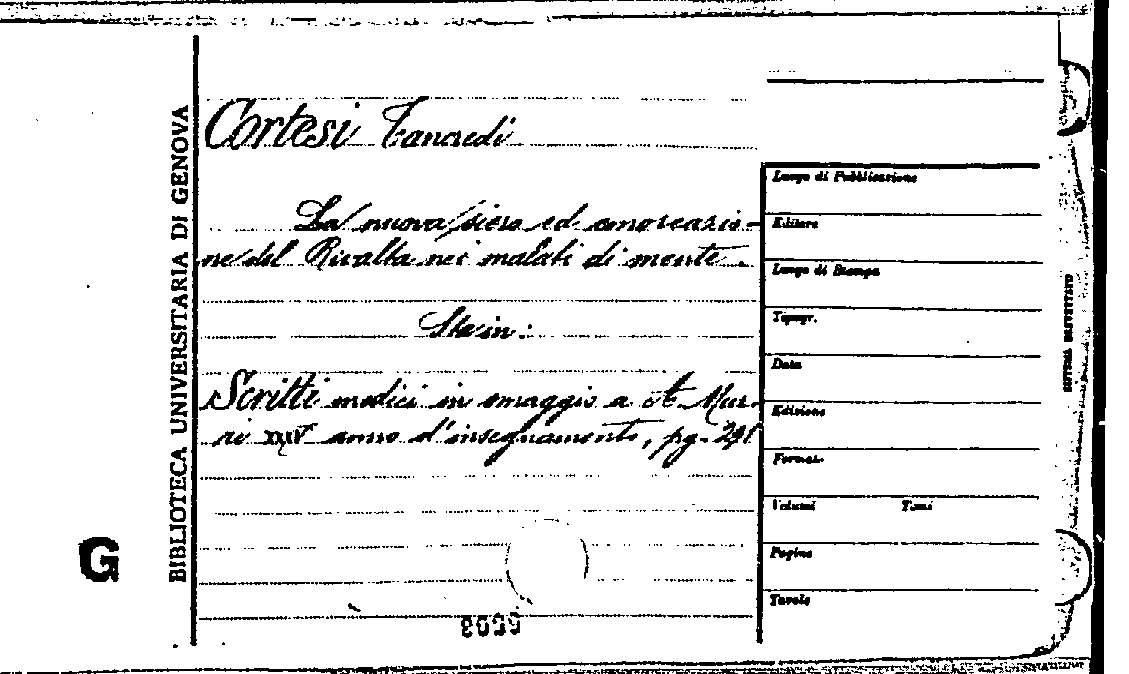 BIBLIOTECA UNIVERSITARIA DI GENOVA
G
Cortesi Tancredi
La nuova siero ed emoreazio-
ne del Rivalta nei malati di mente.
Sta in:
Scritti medici in omaggio a A. Mur-
ri XXIV anno d'insegnamento, pg. 291
Luogo di Pubblicazione
Editore
Luogo di Stampa
Tipogr.
Data
Edizione
Format.
Volumi Tomi
Pagine
Tavole